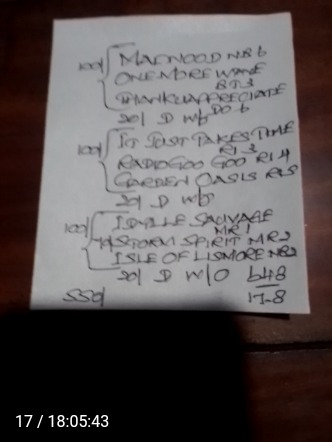 100/ MAGNOOD NB6
ONE MORE WAVE BT3
THANKUAPPRECIATE DO6
20/ D W/O
100/ IT JUST TAKES TIME RI3
RADIO GOO GOO RI4
GARDEN OASIS RL5
20/ D W/O
100/ IDYLLE SAUVAGE MR1
STORM SPIRIT MR2
ISLE OF LISMORE
20/ D W/O 648
550/ 17-8
17 / 18:05:43